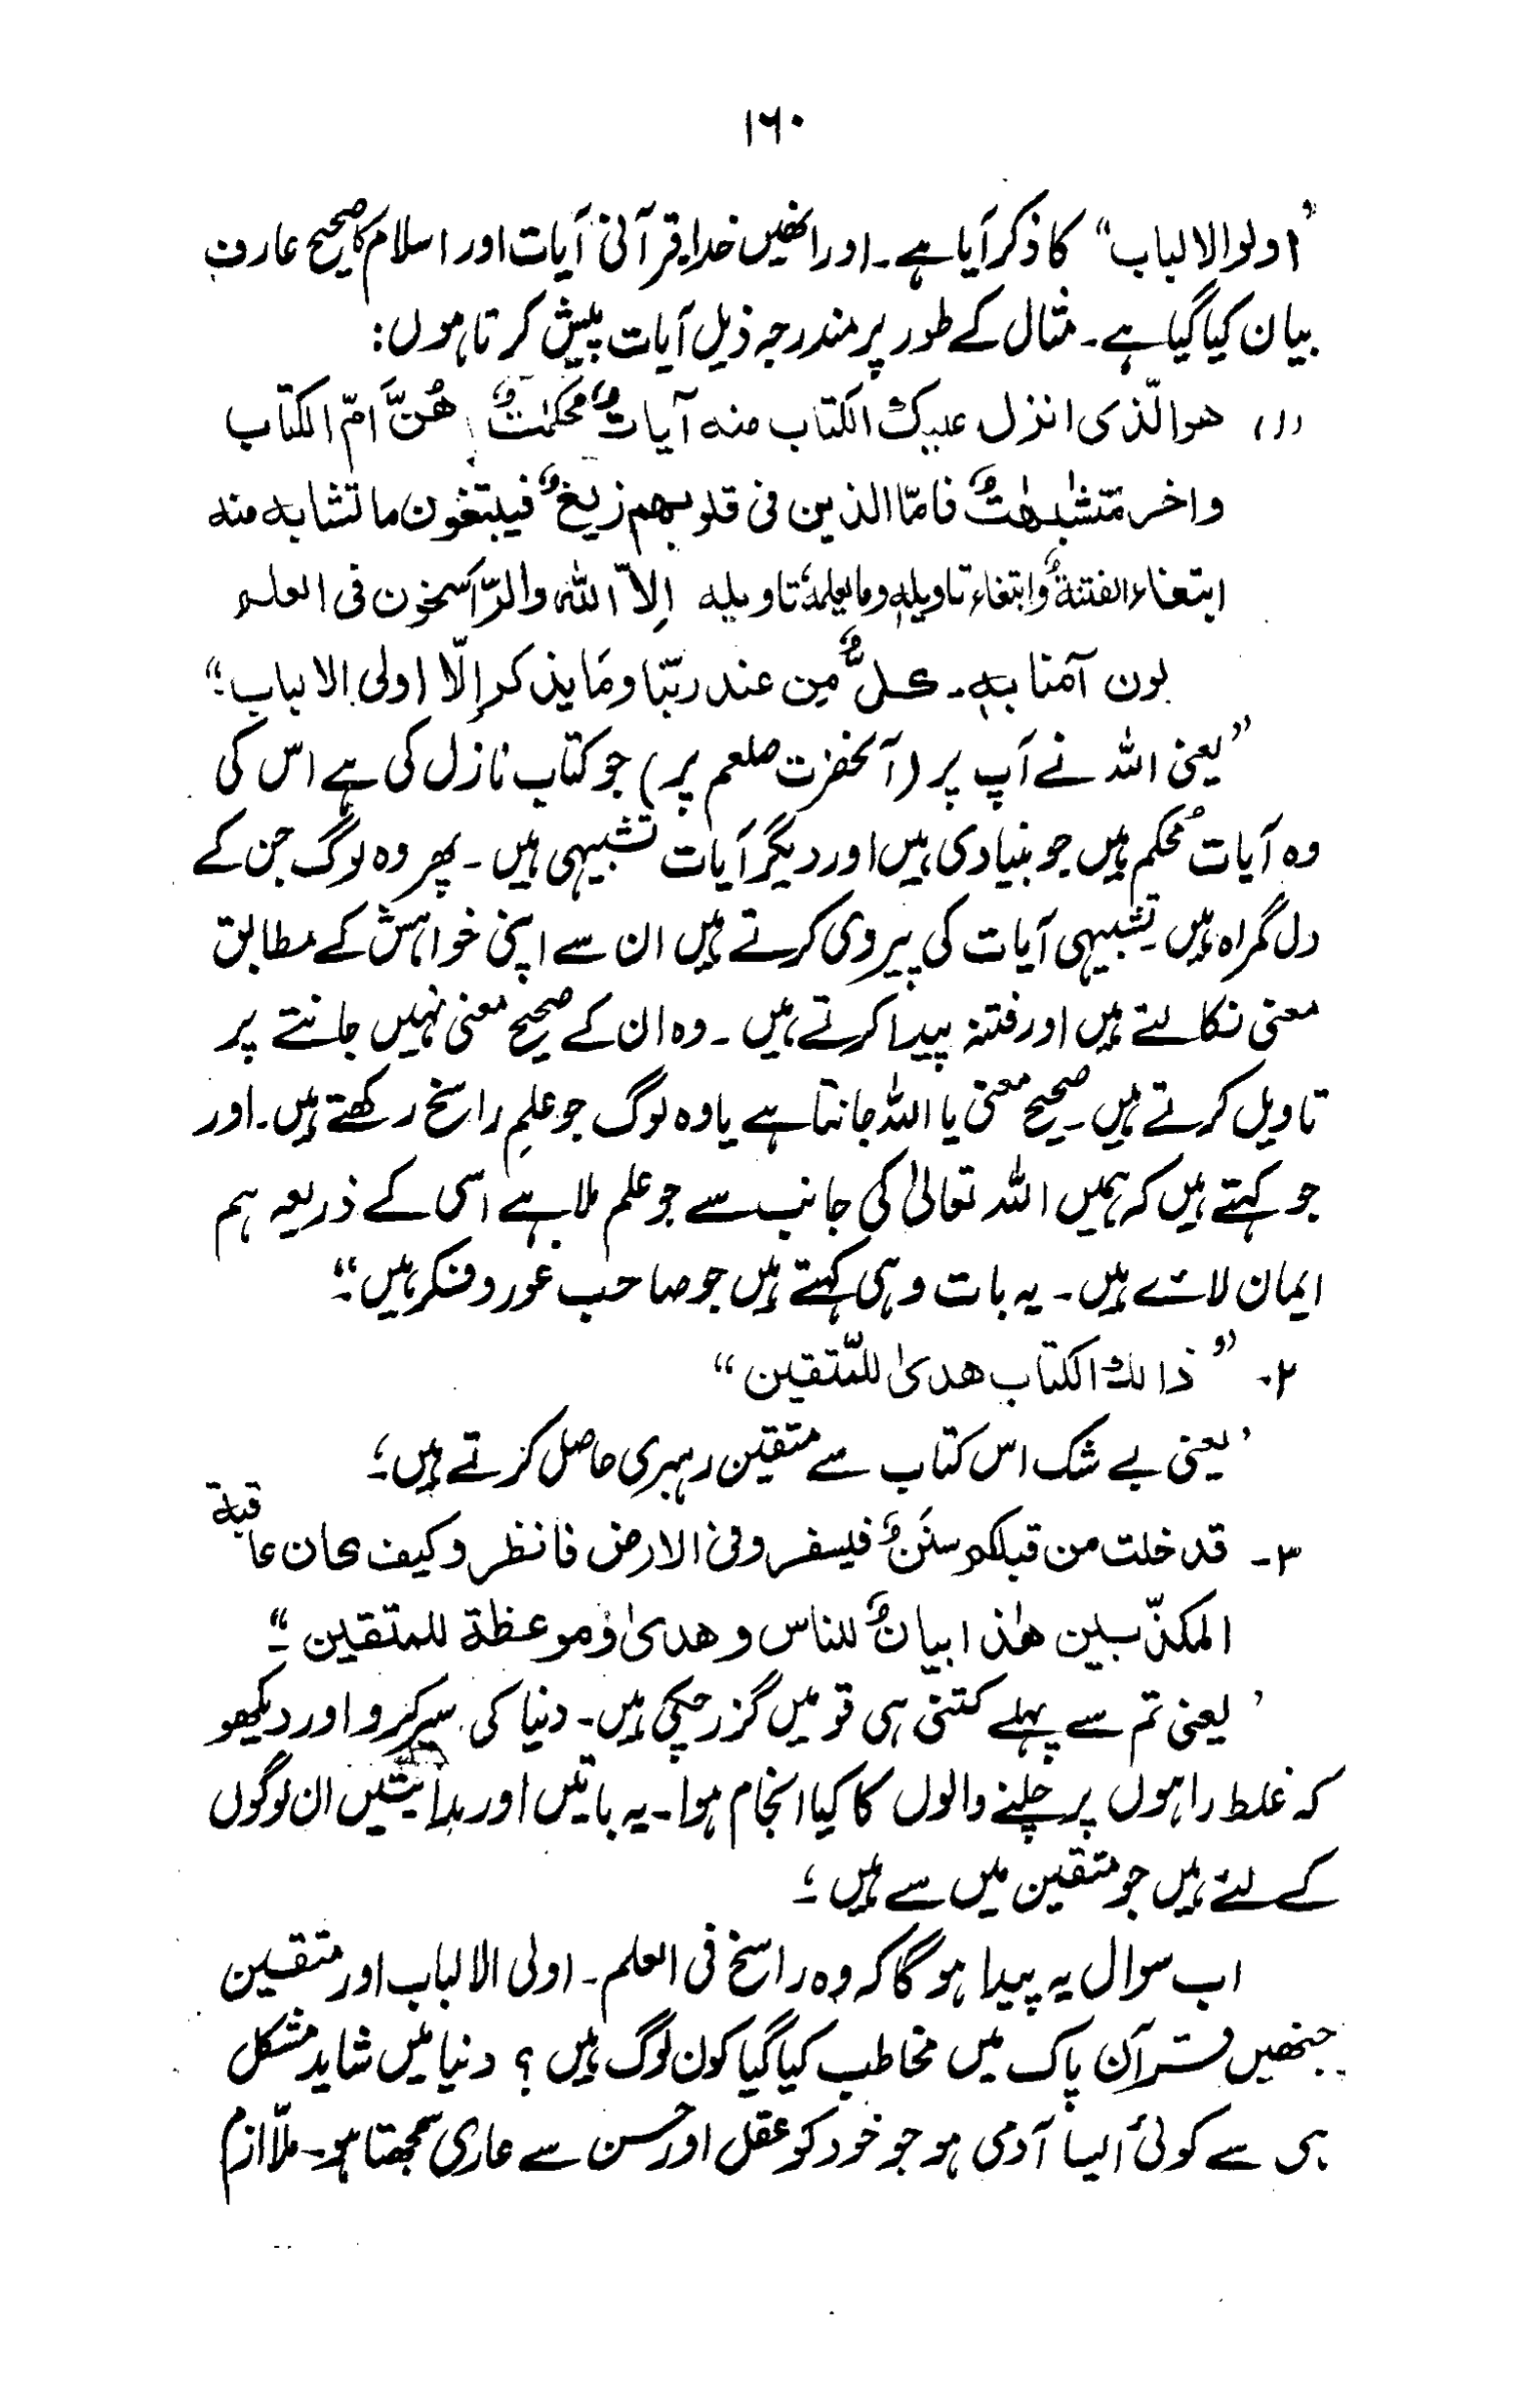 ۱۶۰
"اولوالالباب" کا ذکر آیا ہے۔ اور انھیں خدا، قرآنی آیات اور اسلام کا صحیح عارف
بیان کیا گیا ہے۔ مثال کے طور پر مندرجہ ذیل آیات پیش کرتا ہوں:
(۱) ھوالّذی انزل علیک الکتاب منه آیاتٌ محکمٰتٌ ھُنَّ امّ الکتاب
واخر متشٰبهٰتٌ فامّا الذین فی قلوبهم زیغٌ فیبتغون ماتشابه منه
ابتغاء الفتنةِ وابتغاء تاویلهٖ ومایعلمُ تاویله اِلاّ اللہ والرّاسخون فی العلم
لون آمنا بهٖ۔ کلٌّ مِن عند ربّنا ومَا یذکر اِلّا اولی الالباب؛"
"یعنی اللہ نے آپ پر (آنحضرت صلعم پر) جو کتاب نازل کی ہے اس کی
وہ آیات محکم ہیں جو بنیادی ہیں اور دیگر آیات تشبیہی ہیں۔ پھر وہ لوگ جن کے
دل گمراہ ہیں تشبیہی آیات کی پیروی کرتے ہیں ان سے اپنی خواہش کے مطابق
معنی نکالتے ہیں اور فتنہ پیدا کرتے ہیں۔ وہ ان کے صحیح معنی نہیں جانتے پر
تاویل کرتے ہیں۔ صحیح معنی یا اللہ جانتا ہے یا وہ لوگ جو علمِ راسخ رکھتے ہیں۔ اور
جو کہتے ہیں کہ ہمیں اللہ تعالیٰ کی جانب سے جو علم ملا ہے اسی کے ذریعہ ہم
ایمان لائے ہیں۔ یہ بات وہی کہتے ہیں جو صاحب غور و فکر ہیں؛"
۲۔ "ذالك الکتاب ھدیٰ للمّتقین"
'یعنی بے شک اس کتاب سے متقین رہبری حاصل کرتے ہیں؛'
۳۔ قد خلت من قبلکم سنَنٌ فیسفرو فی الارض فانظرو کیف کان عاقبة
المکذّبین ھٰذا بیانٌ للناس و ھدیٰ و موعظة للمتقین؛"
'یعنی تم سے پہلے کتنی ہی قومیں گزر چکی ہیں۔ دنیا کی سیر کرو اور دیکھو
کہ غلط راہوں پر چلنے والوں کا کیا انجام ہوا۔ یہ باتیں اور ہدایتیں ان لوگوں
کے لئے ہیں جو متقین میں سے ہیں؛'
اب سوال یہ پیدا ہوگا کہ وہ راسخ فی العلم۔ اولی الالباب اور متقین
جنھیں قرآن پاک میں مخاطب کیا گیا کون لوگ ہیں؟ دنیا میں شاید مشکل
ہی سے کوئی ایسا آدمی ہو جو خود کو عقل اور حسن سے عاری سمجھتا ہو۔ ملّا ازم